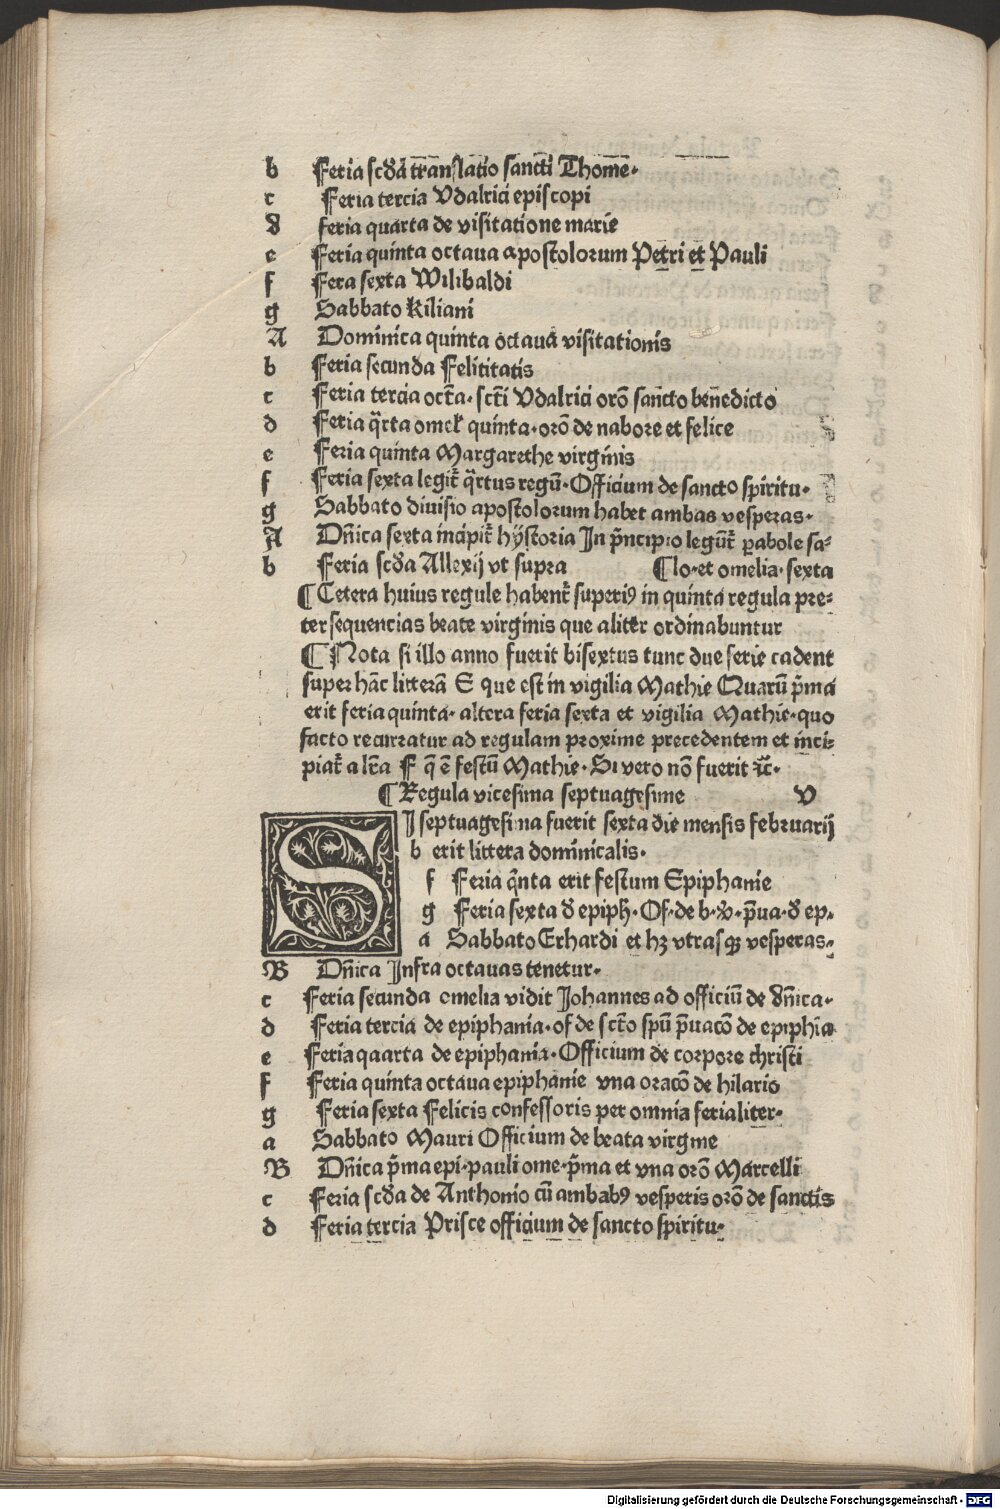 b Feria scďa trãnslatio sancti Thome.
c Feria tercia Vdalrici episcopi
d feria quarta de visitatione marie
e Feria quinta octaua apostolorum Petri et Pauli
f Fera sexta Wilibaldi
g Sabbato Kiliani
A Dominica quinta octaua visitationis
b Feria secunda Felititatis
c Feria tercia oct̄a. sct̄i Vdalrici orō sancto benedicto
d Feria q̄rta omel̄ quinta. orō de nabore et felice
e Feria quinta Margarethe virginis
f Feria sexta legit̄ q̄rtus regū. Officium de sancto spiritu.
g Sabbato diuisio apostolorum habet ambas vesperas.
A Dn̄ica sexta incipit̄ hystoria In p̄ncipio legūt̄ ꝑabole sa⸗
b Feria scďa Allexij vt supra ¶lo. et omelia. sexta
¶Cetera huius regule habent̄ superiꝰ in quinta regula pre⸗
ter sequencias beate virginis que aliter ordinabuntur
¶Nota si illo anno fuerit bisextus tunc due ferie cadent
super hāc litterā E que est in vigilia Mathie Quarū p̄ma
erit feria quinta. altera feria sexta et vigilia Mathie. quo
facto recurratur ad regulam proxime precedentem et inci⸗
piat̄ a lr̄a F q̄ ē festū Mathie. Si vero nō fuerit ꝛc̄.
¶Regula vicesima septuagesime V
SI septuagesima fuerit sexta die mensis februarij
b erit littera dominicalis.
f Feria q̄nta erit festum Epiphanie
g Feria sexta ď epiph̄. Of. de b. v̄. p̄ua. ď ep.
a Sabbato Erhardi et hꝫ vtrasqꝫ vesperas.
B Dn̄ica Infra octauas tenetur.
c Feria secunda omelia vidit Johannes ad officiū de dn̄ica.
d Feria tercia de epiphania. of de sct̄o spū p̄uacō de epiphīa
e Feria qaarta de epiphania. Officium de corpore christi
f Feria quinta octaua epiphanie vna oracō de hilario
g Feria sexta Felicis confessoris per omnia ferialiter.
a Sabbato Mauri Officium de beata virgine
B Dn̄ica p̄ma epi. pauli ome. p̄ma et vna orō Marcelli
c Feria scďa de Anthonio cū ambabꝰ vesperis orō de sanctis
d Feria tercia Prisce officium de sancto spiritu.
Digitalisierung gefördert durch die Deutsche Forschungsgemeinschaft - DFG